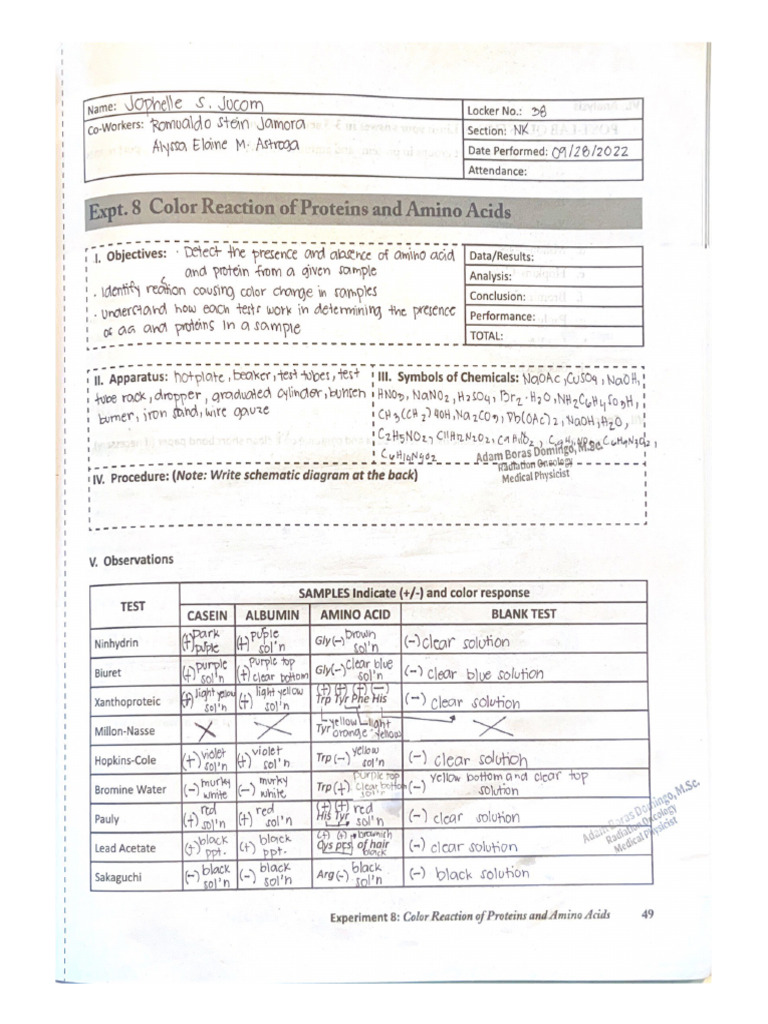 Name: Jophelle S. Jucom
Locker No.: 38
Co-Workers: Romualdo Stein Jamora
Section: NK
Alyssa Elaine M. Astroga
Date Performed: 09/28/2022
Attendance:
Expt. 8 Color Reaction of Proteins and Amino Acids
I. Objectives: · Detect the presence and absence of amino acid
and protein from a given sample
· Identify reation causing color change in samples
c
· understand how each tests work in determining the presence
of aa and proteins in a sample
Data/Results:
Analysis:
Conclusion:
Performance:
TOTAL:
II. Apparatus: hotplate, beaker, test tubes, test
tube rack, dropper, graduated cylinder, bunsen
burner, iron stand, wire gauze
III. Symbols of Chemicals: NaOAc, CuSO4, NaOH,
HNO3, NaNO2, H2SO4, Br2·H2O, NH2C6H4SO3H,
CH3(CH2)4OH, Na2CO3, Pb(OAc)2, NaOH, H2O,
C2H5NO2, C11H12N2O2,
C6H14N4O2
Adam Boras Domingo, M.Sc.
Radiation Oncology
Medical Physicist
IV. Procedure: (Note: Write schematic diagram at the back)
V. Observations
TEST SAMPLES Indicate (+/-) and color response
CASEIN ALBUMIN AMINO ACID BLANK TEST
Ninhydrin (+) Dark puple sol'n (+) puple sol'n Gly (-) brown sol'n (-) clear solution
Biuret (+) purple sol'n (+) Purple top clear bottom Gly (-) clear blue sol'n (-) clear blue solution
Xanthoproteic (+) light yellow sol'n (+) light yellow sol'n (+) (+) (+) (-) Trp Tyr Phe His (-) clear solution
Millon-Nasse X X Tyr yellow orange light yellow X
Hopkins-Cole (+) violet sol'n (+) violet sol'n Trp (-) yellow sol'n (-) clear solution
Bromine Water (-) murky white (-) murky white Trp (+) Purple top clear bottom sol'n (-) yellow bottom and clear top solution
Pauly (+) red sol'n (+) red sol'n (+) (+) His Tyr red sol'n (-) clear solution
Lead Acetate (+) black ppt. (+) black ppt. (+) (+) Cys pcs. of hair brownish black (-) clear solution
Sakaguchi (-) black sol'n (-) black sol'n Arg (-) black sol'n (-) black solution
Adam Boras Domingo, M.Sc.
Radiation Oncology
Medical Physicist
Experiment 8: Color Reaction of Proteins and Amino Acids 49